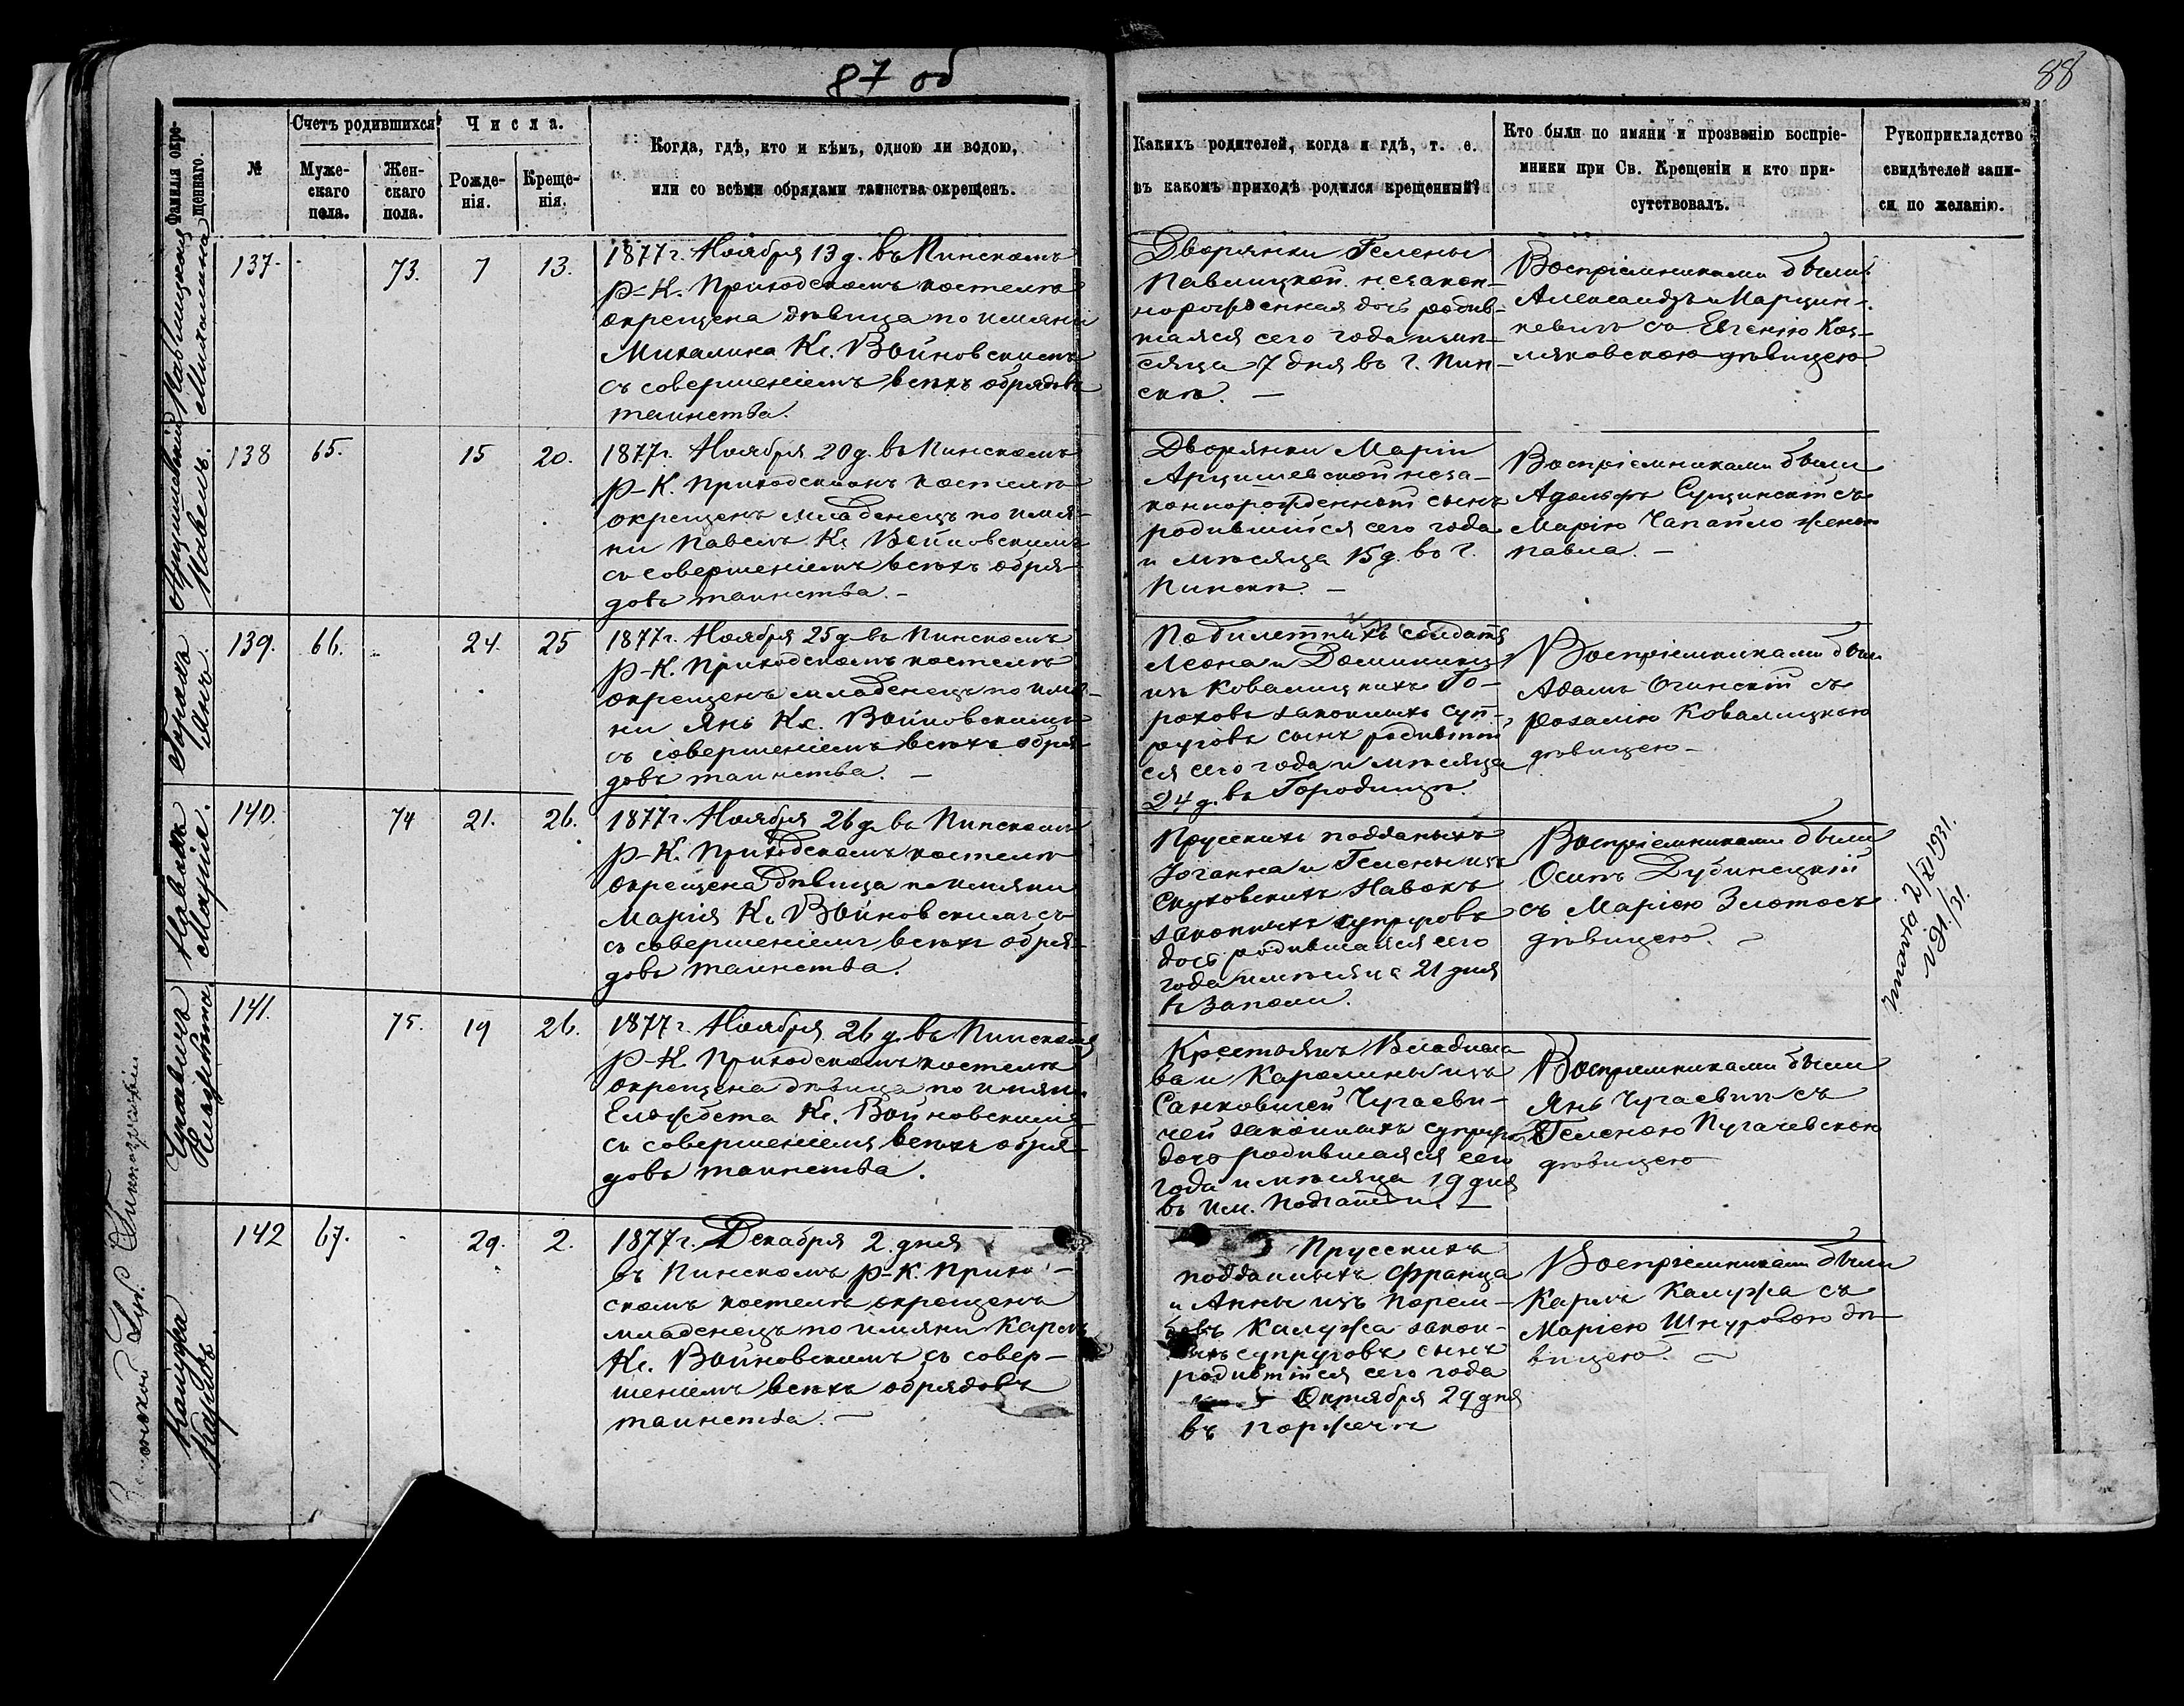 87 об
88
Фамилія окре-
щеннаго.
№
Счетъ родившихся
Муже-
скаго
пола.
Жен-
скаго
пола.
Числа.
Рожде-
нія.
Креще-
нія.
Когда, гдѣ, кто и кѣмъ, одною ли водою,
или со всѣми обрядами таинства окрещенъ.
Какихъ родителей, когда и гдѣ, т. е.
въ какомъ приходѣ родился крещенный?
Кто были по имяни и прозванію воспріе-
мники при Св. Крещеніи и кто при-
сутствовалъ.
Рукоприкладство
свидѣтелей запи-
си по желанію.
Павлицкая
Михалина
137.
73.
7
13.
1877 г. Ноября 13 д. въ Пинскомъ
Р-К. Приходскомъ костелѣ
окрещена дѣвица по имяни
Михалина Кс. Войновскимъ
съ совершеніемъ всѣхъ обрядовъ
таинства.
Дворянки Гелены
Павлицкой незакон-
норожденная дочь родив-
шаяся сего года и мѣ-
сяца 7 дня въ г. Пин-
скѣ. —
Воспріемниками были
Александръ Марцин-
кевичъ съ Евгеніею Коз-
ляковскою дѣвицею
Арцишевскій
Павелъ.
138
65.
15
20.
1877 г. Ноября 20 д. въ Пинскомъ
Р-К. Приходскомъ костелѣ
окрещенъ младенецъ по имя-
ни Павелъ Кс. Войновскимъ
съ совершеніемъ всѣхъ обря-
довъ таинства. —
Дворянки Маріи
Арцишевской неза-
коннорожденный сынъ
родившійся сего года
и мѣсяца 15 д. въ г.
Пинскѣ. —
Воспріемниками были
Адольфъ Сущинскій съ
Маріею Чапайло женою
Павла. —
Горохъ
Янъ.
139.
66.
24.
25
1877 г. Ноября 25 д. въ Пинскомъ
Р-К. Приходскомъ костелѣ
окрещенъ младенецъ по имя-
ни Янъ Кс. Войновскимъ
съ совершеніемъ всѣхъ обря-
довъ таинства. —
По билетныхъ солдата
Леона и Доминики
изъ Ковалицкихъ Го-
роховъ законныхъ суп-
руговъ сынъ родившій
ся сего года и мѣсяца
24 д. въ Городищѣ.
Воспріемниками были
Адамъ Огинскій съ
Розаліею Ковалицкою
дѣвицею —
Навокъ
Марія.
140.
74
21.
26.
1877 г. Ноября 26 д. въ Пинскомъ
Р-К. Приходскомъ костелѣ
окрещена дѣвица по имяни
Марія Кс. Войновскимъ съ
съ совершеніемъ всѣхъ обря-
довъ таинства.
Прусскихъ подданыхъ
Іоганна и Гелены изъ
Скуховскихъ Навокъ
законныхъ супруговъ
дочь родившаяся сего
года и мѣсяца 21 дня
въ Заполи.
Воспріемниками были
Осипъ Дубинецкій
съ Маріею Злотосъ
дѣвицею. —
zmarła 2/XI 1931.
Чугаевичъ
Елизабета
141.
75.
19
26.
1877 г. Ноября 26 д. въ Пинскомъ
Р-К. Приходскомъ костелѣ
окрещена дѣвица по имяни
Елизабета Кс. Войновскимъ
съ совершеніемъ всѣхъ обря-
довъ таинства.
Крестьянъ Владисла
ва и Каролины изъ
Санковичей Чугаеви-
чей законныхъ супруговъ
дочь родившаяся сего
года и мѣсяца 19 дня
въ им. Подгатьи. —
Воспріемниками были
Янъ Чугаевичъ съ
Геленою Пугачевскою
дѣвицею
Калужа
Карлъ
142
67.
29.
2.
1877 г. Декабря 2. дня
въ Пинскомъ Р-К. Прихо-
скомъ костелѣ окрещенъ
младенецъ по имяни Карлъ
Кс. Войновскимъ съ совер-
шеніемъ всѣхъ обрядовъ
таинства. —
Прусскихъ
подданныхъ Франца
и Анны изъ
Калужа закон-
супруговъ сынъ
родившійся сего года
Октября 29 дня
въ Порѣчѣ
Воспріемниками были
Карлъ Калужа съ
Маріею Шнуровою дѣ-
вицею. —
Губ. Типографіи